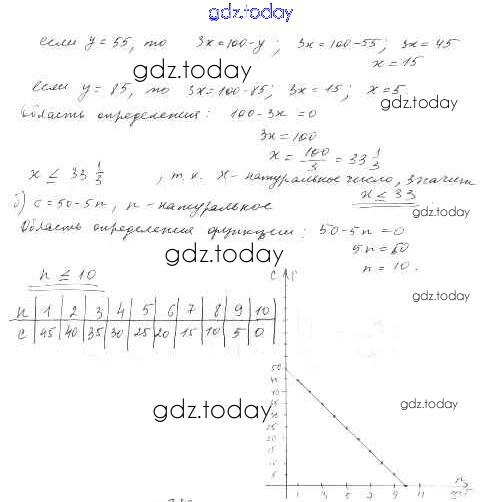 gdz.today
если y = 55, то 3x = 100 - y; 3x = 100 - 55; 3x = 45
x = 15
gdz.today
если y = 85, то 3x = 100 - 85; 3x = 15; x = 5.
gdz.today
Область определения: 100 - 3x = 0
3x = 100
x = 100/3 = 33 1/3
x ≤ 33 1/3, т.к. x - натуральное число, значит
x ≤ 33.
б) c = 50 - 5n, n - натуральное
gdz.today
Область определения функции: 50 - 5n = 0
5n = 50
gdz.today
n = 10.
n ≤ 10
gdz.today
n 1 2 3 4 5 6 7 8 9 10
c 45 40 35 30 25 20 15 10 5 0
c
50
45
40
35
30
25
20
15
10
5
1 3 5 7 9 11
n
gdz.today
gdz.today